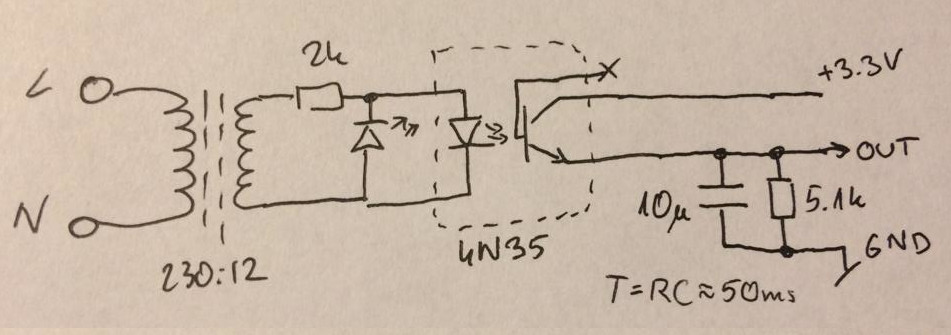 L
N
230:12
2k
4N35
+3.3V
OUT
10μ
5.1k
GND
T=RC≈50ms